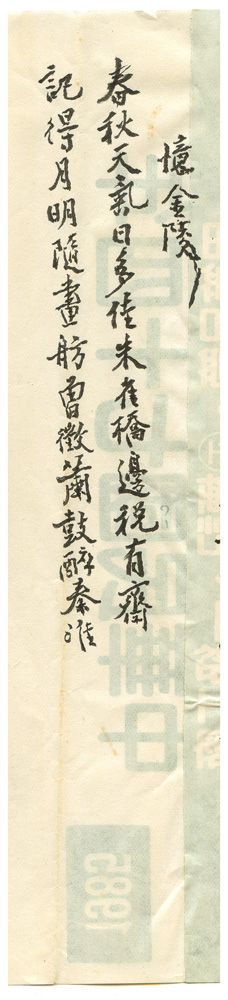 憶金陵
春秋天氣日多佳朱雀橋邊稅有齋
記得月明隨畫舫曾徵簫鼓醉秦淮
1985